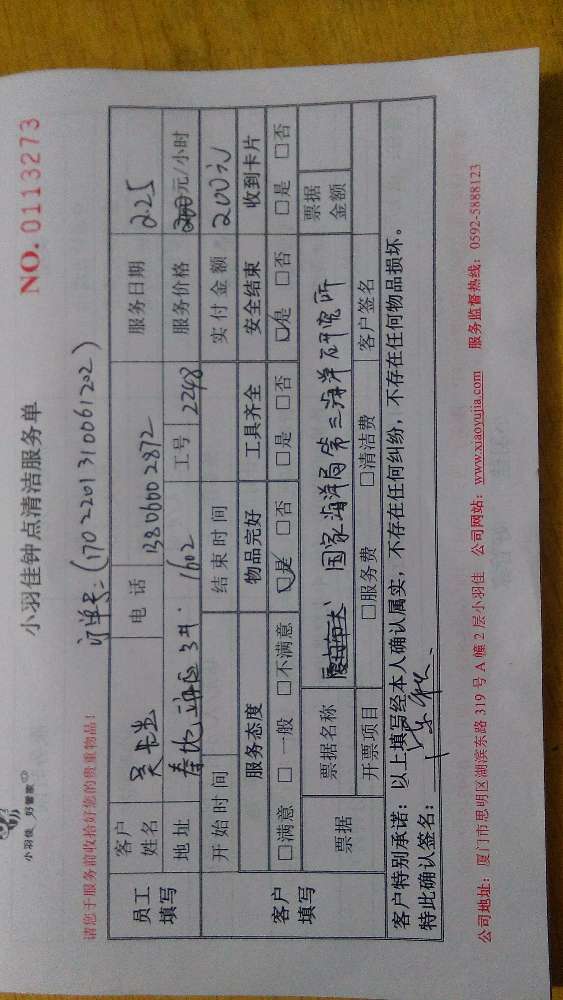 小羽佳 好管家
小羽佳钟点清洁服务单
NO. 0113273
请您于服务前收拾好您的贵重物品!
订单号:(1702201310061202)
员工填写 客户姓名 电话 13806002872 服务日期 2.25
地址 1602 工号 2248 服务价格 元/小时
开始时间 结束时间 实付金额 200元
客户填写 服务态度 物品完好 工具齐全 安全结束 收到卡片
□满意 □一般 □不满意 ☑是 □否 □是 □否 ☑是 □否 □是 □否
票据 票据名称 国家海洋局第三海洋研究所 票据金额
开票项目 □服务费 □清洁费 客户签名
客户特别承诺:以上填写经本人确认属实,不存在任何纠纷,不存在任何物品损坏。
特此确认签名:
公司地址:厦门市思明区湖滨东路 319 号 A 幢 2 层小羽佳 公司网站:www.xiaoyujia.com 服务监督热线:0592-5888123